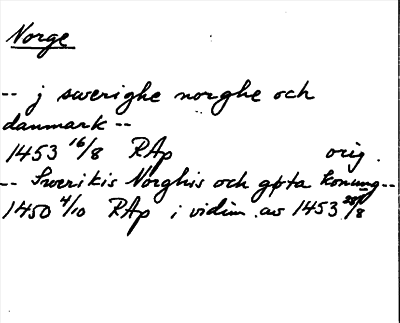 Norge
-- j swerighe norghe och
danmark --
1453 16/8 RAp orig.
-- Swerikis Norghis och gøta konung --
1450 4/10 RAp i vidim. av 1453 /8